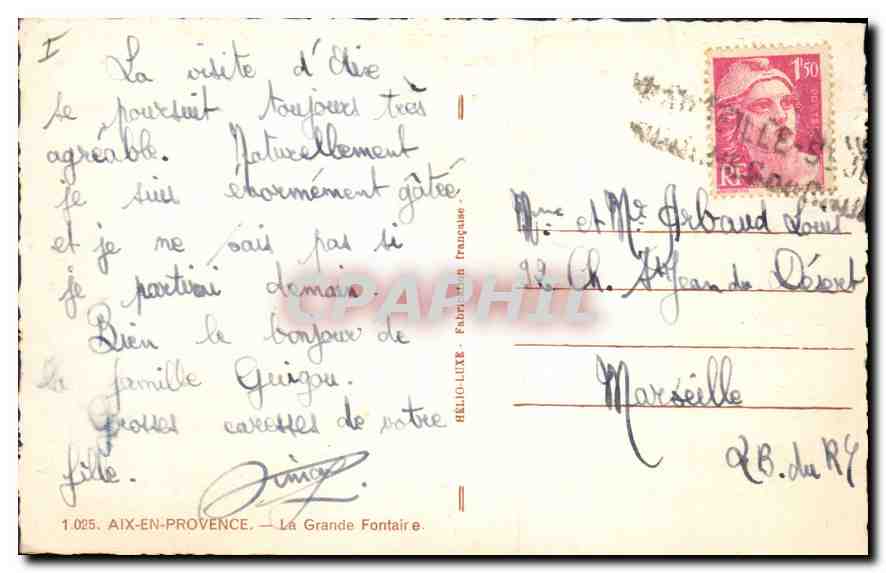 I
La visite d'Elise
se poursuit toujours très
agréable. Naturellement
je suis énormément gâtée
et je ne sais pas si
je partirai demain.
Bien le bonjour de
la famille Guigou.
Grosses caresses de votre
fille.
1.025. AIX-EN-PROVENCE. — La Grande Fontaine.
HÉLIO-LUXE - Fabrication française.
1F50
RF
Mme et Mr Arbaud Louis
22 Ch. St Jean du Désert
Marseille
(B. du R)
CPAPHIL